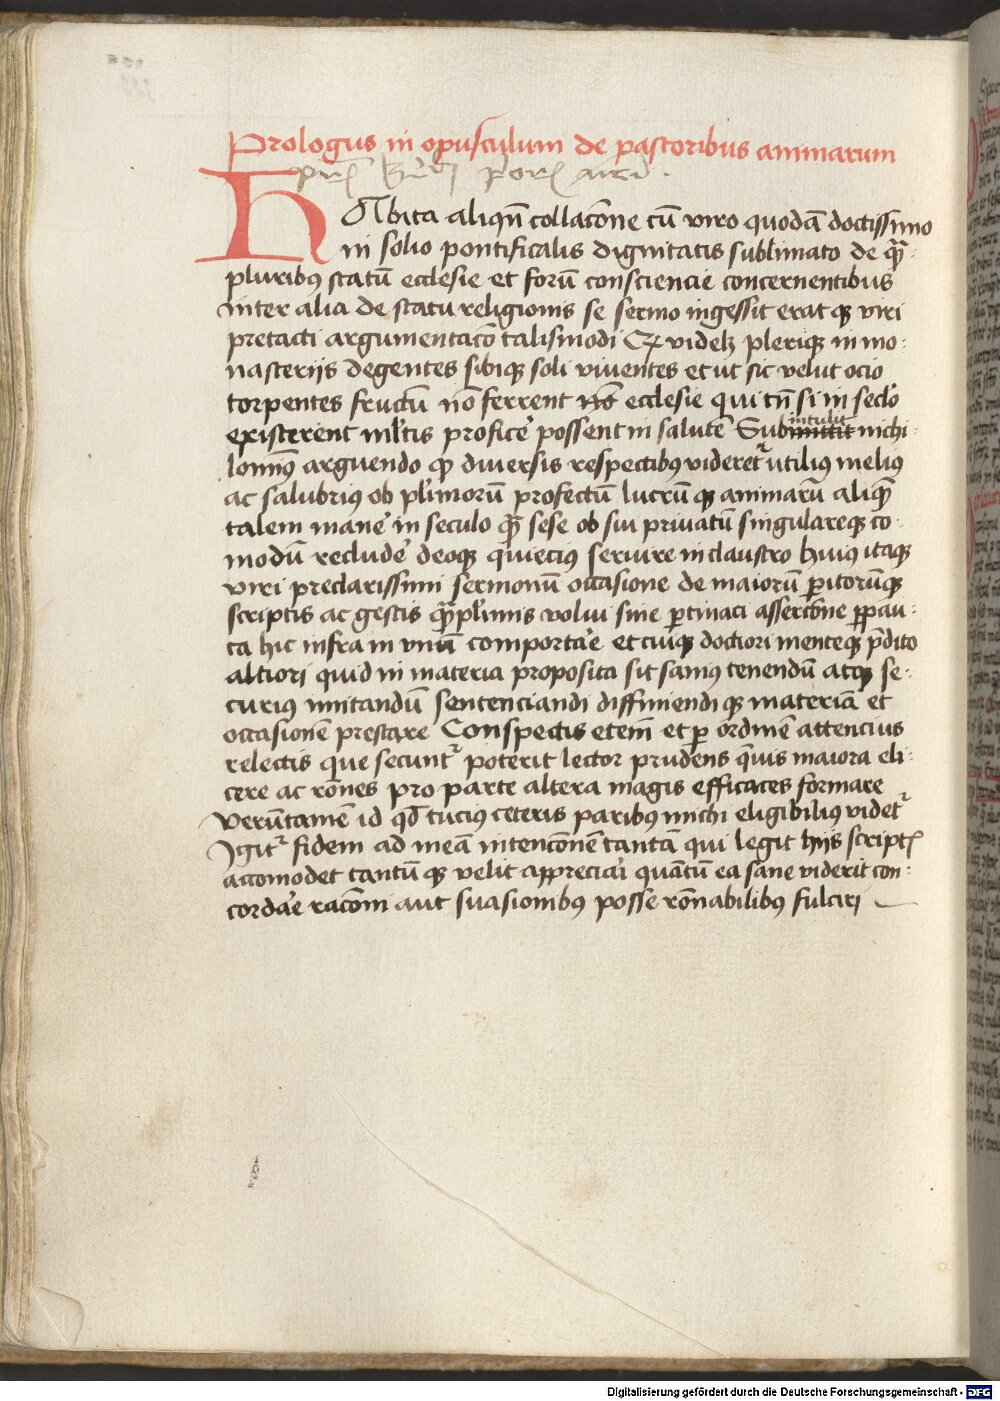 Prologus in opusculum de pastoribus animarum
HAbita aliqñ collacõne cũ viro quodã doctissimo
in solio pontificalis dignitatis sublimato de q̃ꝫ
pluribꝰ statũ ecclesie et forũ consciencie concernentibus
inter alia de statu religionis se sermo ingessit erat qꝫ viri
pretacti argumentacõ talismodi Qꝫ videlꝫ pleriqꝫ in mo:
nasterijs degentes sibiqꝫ soli viventes et ut sic velut ocio
torpentes fructũ nõ ferrent ecclesie qui tñ si in seclo
existerent ml̃tis profice̓ possent in salutẽ Subintulit nichi:
lominꝰ arguendo qꝫ diversis respectibꝰ videret᷑ utiliꝰ meliꝰ
ac salubriꝰ ob pl̃imorũ profectũ lucrũ qꝫ animarũ aliquẽ
talem mane̓ in seculo q̃ꝫ sese ob sui privatũ singulareqꝫ co:
modũ reclude̓ deoqꝫ quieciꝰ servire in claustro Huiꝰ itaqꝫ
viri preclarissimi sermonũ occasione de maiorũ ꝑitorũqꝫ
scriptis ac gestis q̃ꝫpl̃imis volui sine ꝑtinaci assercõne ꝑpau:
ca hic infra in vnũ comporta̓e et cuiqꝫ doctiori menteqꝫ p̃dito
altiori quid in materia proposita sit saniꝰ tenendũ atqꝫ se:
curiꝰ imitandũ sentenciandi diffiniendi qꝫ materiã et
occasionẽ prestare Conspectis etem̃ et ꝑ ordinẽ attencius
relectis que secunt᷑ poterit lector prudens q̃uis maiora eli:
cere ac rõnes pro parte altera magis efficaces formare
Verũtamẽ id qd̃ tuciꝰ ceteris paribꝰ michi eligibiliꝰ videt᷑
Igit᷑ fidem ad meã intencõnẽ tantã qui legit hijs scriptꝭ
accomodet tantũ qꝫ velit appreciari quãtũ ea sane viderit con:
corda̓e racõni aut suasionibꝰ posse rõnabilibꝰ fulciri
Digitalisierung gefördert durch die Deutsche Forschungsgemeinschaft - DFG